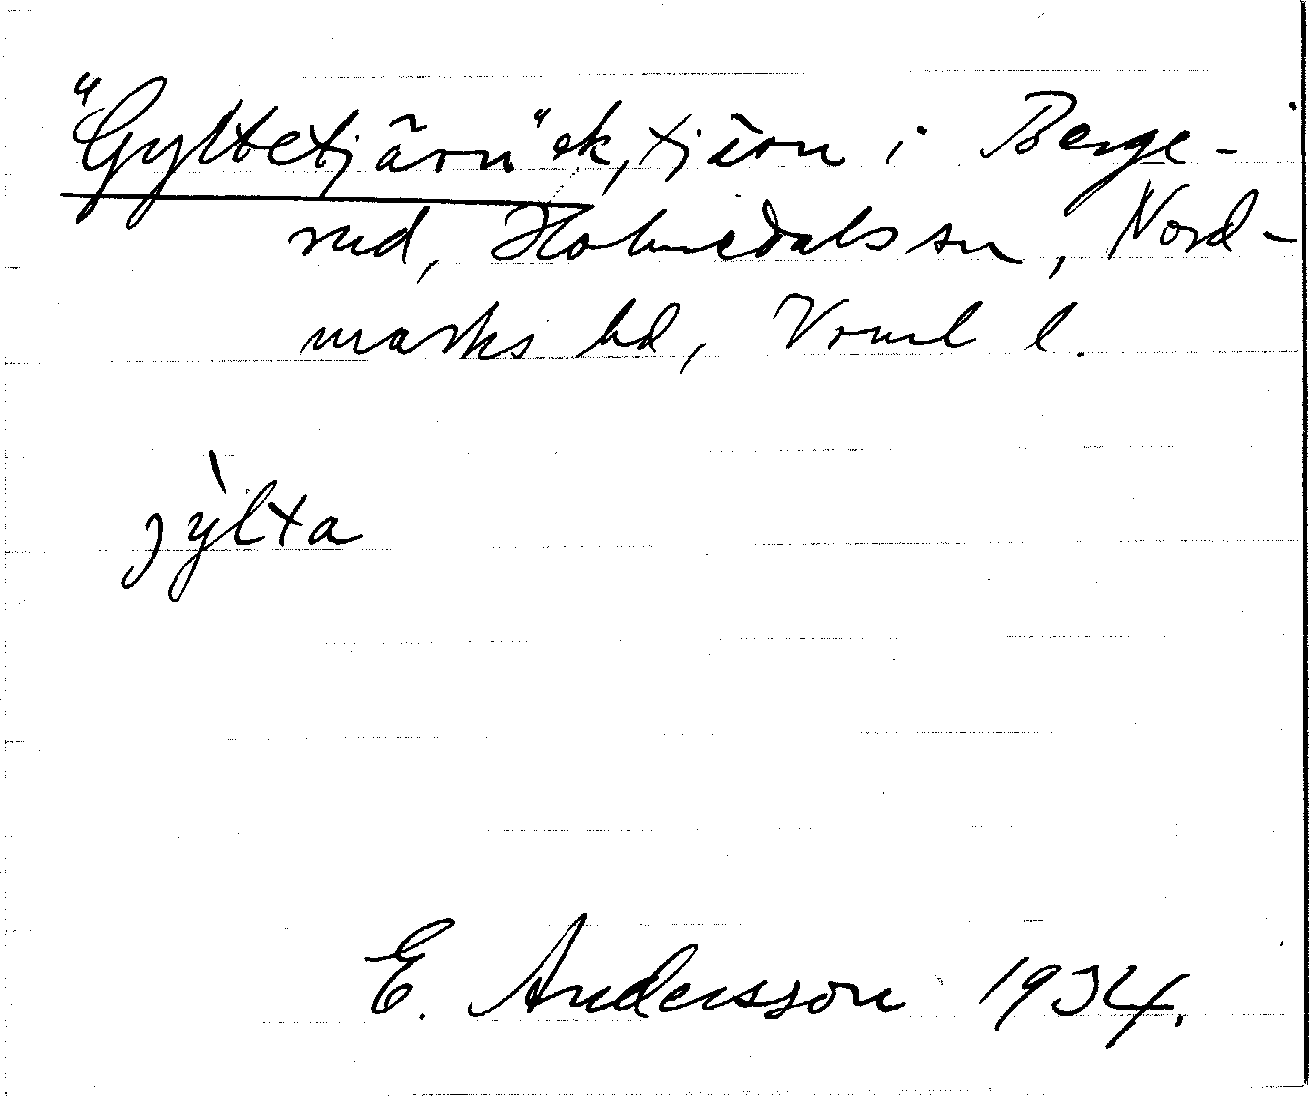 "Gyltetjärn" ek, tjärn i Berge-
rud, Holmedals sn, Nord-
marks hd, Värml l.
jỳlta
E. Andersson 1934.